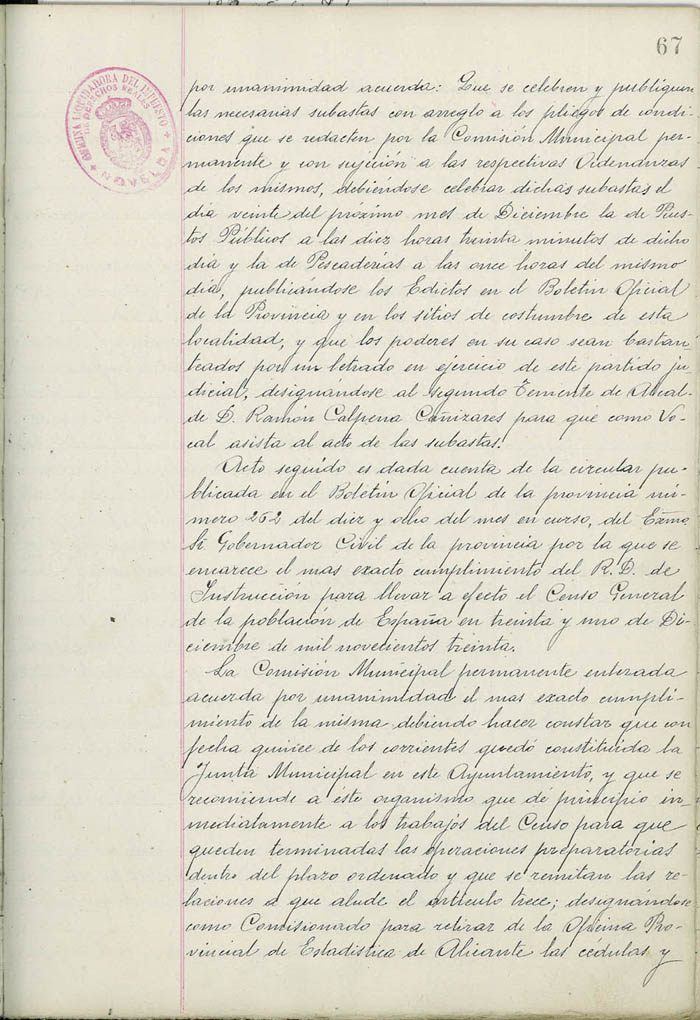 67
OFICINA LIQUIDADORA DEL IMPUESTO
DE DERECHOS REALES
NOVELDA
por unanimidad acuerda: Que se celebren y publiquen
las necesarias subastas con arreglo a los pliegos de condi-
ciones que se redacten por la Comisión Municipal per-
manente y con sujición a las respectivas Ordenanzas
de los mismos, debiéndose celebrar dichas subastas el
dia veinte del próximo mes de Diciembre la de Pues-
tos Públicos a las diez horas treinta minutos de dicho
dia y la de Pescaderías a las once horas del mismo
dia, publicándose los Edictos en el Boletin Oficial
de la Provincia y en los sitios de costumbre de esta
localidad, y que los poderes en su caso sean bastan-
teados por un letrado en ejercicio de este partido ju-
dicial, designándose al segundo Teniente de Alcal-
de D. Ramón Calpena Cañizares para que como Vo-
cal asista al acto de las subastas.
Acto seguido es dada cuenta de la circular pu-
blicada en el Boletin Oficial de la provincia nú-
mero 262 del diez y ocho del mes en curso, del Exmo
Sr. Gobernador Civil de la provincia por la que se
encarece el mas exacto cumplimiento del R.D. de
Instrucción para llevar a efecto el Censo General
de la población de España en treinta y uno de Di-
ciembre de mil novecientos treinta.
La Comisión Municipal permanente enterada
acuerda por unanimidad el mas exacto cumpli-
miento de la misma debiendo hacer constar que con
fecha quince de los corrientes quedó constituida la
Junta Municipal en este Ayuntamiento, y que se
recomiende a éste organismo que dé principio in-
mediatamente a los trabajos del Censo para que
queden terminadas las operaciones preparatorias
dentro del plazo ordenado y que se remitan las re-
laciones a que alude el artículo trece; designándose
como Comisionado para retirar de la Oficina Pro-
vincial de Estadistica de Alicante las cédulas y